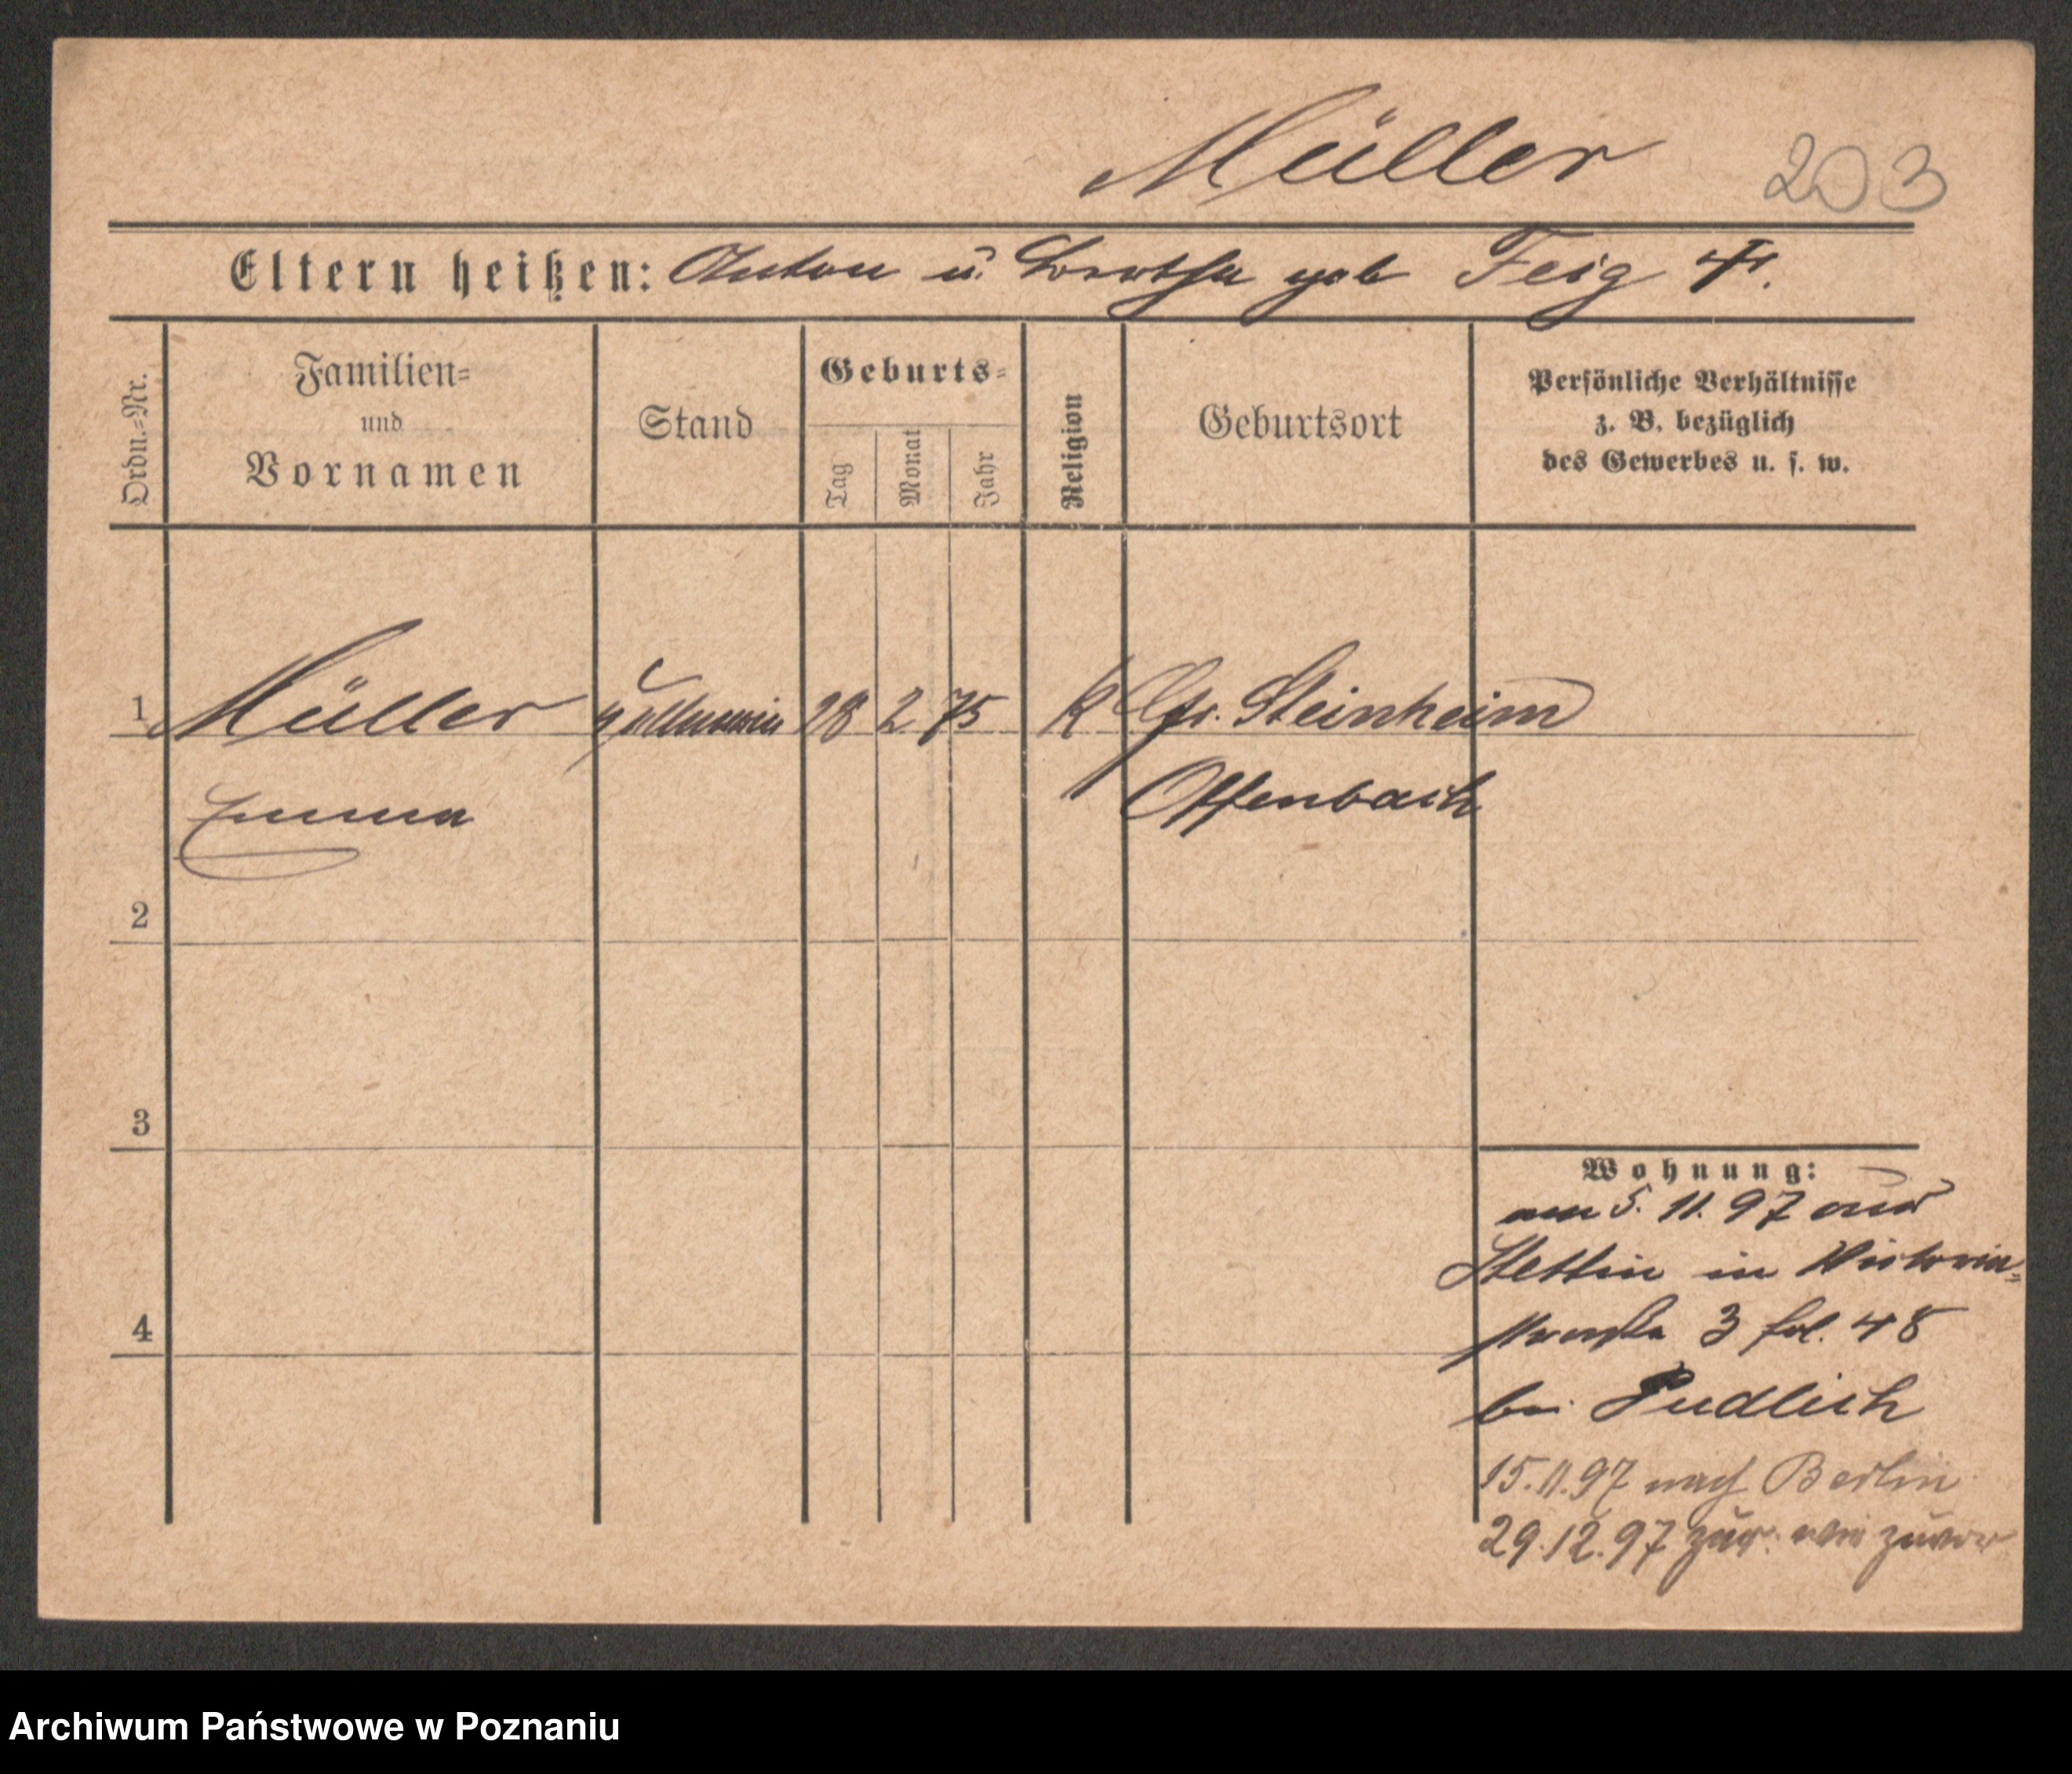 Müller 203
Eltern heißen: Anton u. Dorothea geb Feig
Ordn.-Nr.
Familien-
und
Vornamen
Stand
Geburts-
Tag
Monat
Jahr
Religion
Geburtsort
Persönliche Verhältnisse
z. B. bezüglich
des Gewerbes u. s. w.
1 Müller Kellnerin 28 2 75 K Gr. Steinheim
Emma Offenbach
2
3
Wohnung:
am 5. 11. 97 aus
Stettin in Victoria-
4
straße 3 fol. 48
bei Pudlich
15.11.97 nach Berlin
29.12.97 zur. wie zuvor
Archiwum Państwowe w Poznaniu